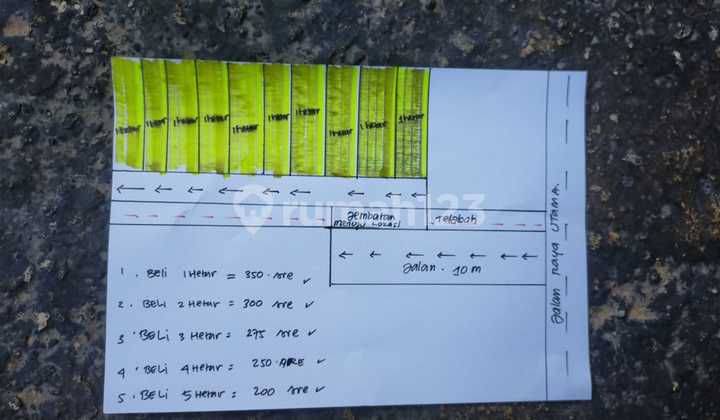 1 hektar
1 hektar
1 hektar
1 hektar
1 hektar
1 hektar
1 hektar
1 hektar
1 hektar
1 hektar
rumah123
Jembatan
menuju Lokasi
Telabah
Jalan. 10 m
Jalan raya UTAMA.
1 . Beli 1 Hektar = 350. are ✓
2 . BELI 2 Hektar = 300 are ✓
3 . BELI 3 Hektar = 275 are ✓
4 . BELI 4 Hektar = 250. ARE ✓
5 . BELI 5 Hektar = 200 are ✓